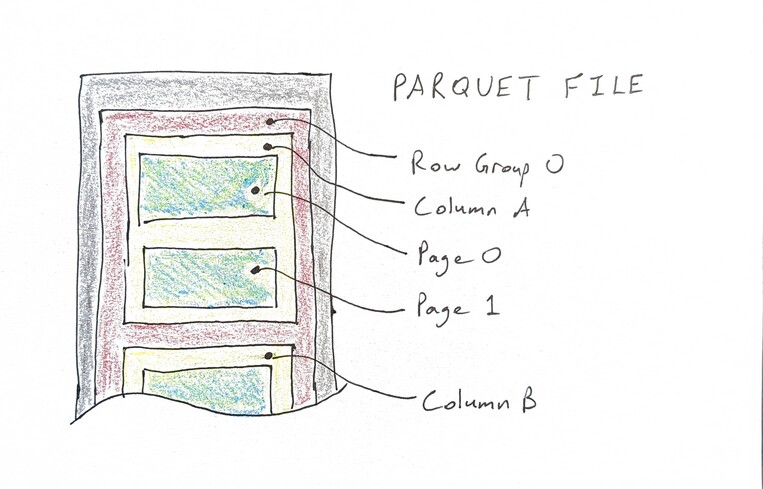 PARQUET FILE
Row Group 0
Column A
Page 0
Page 1
Column B